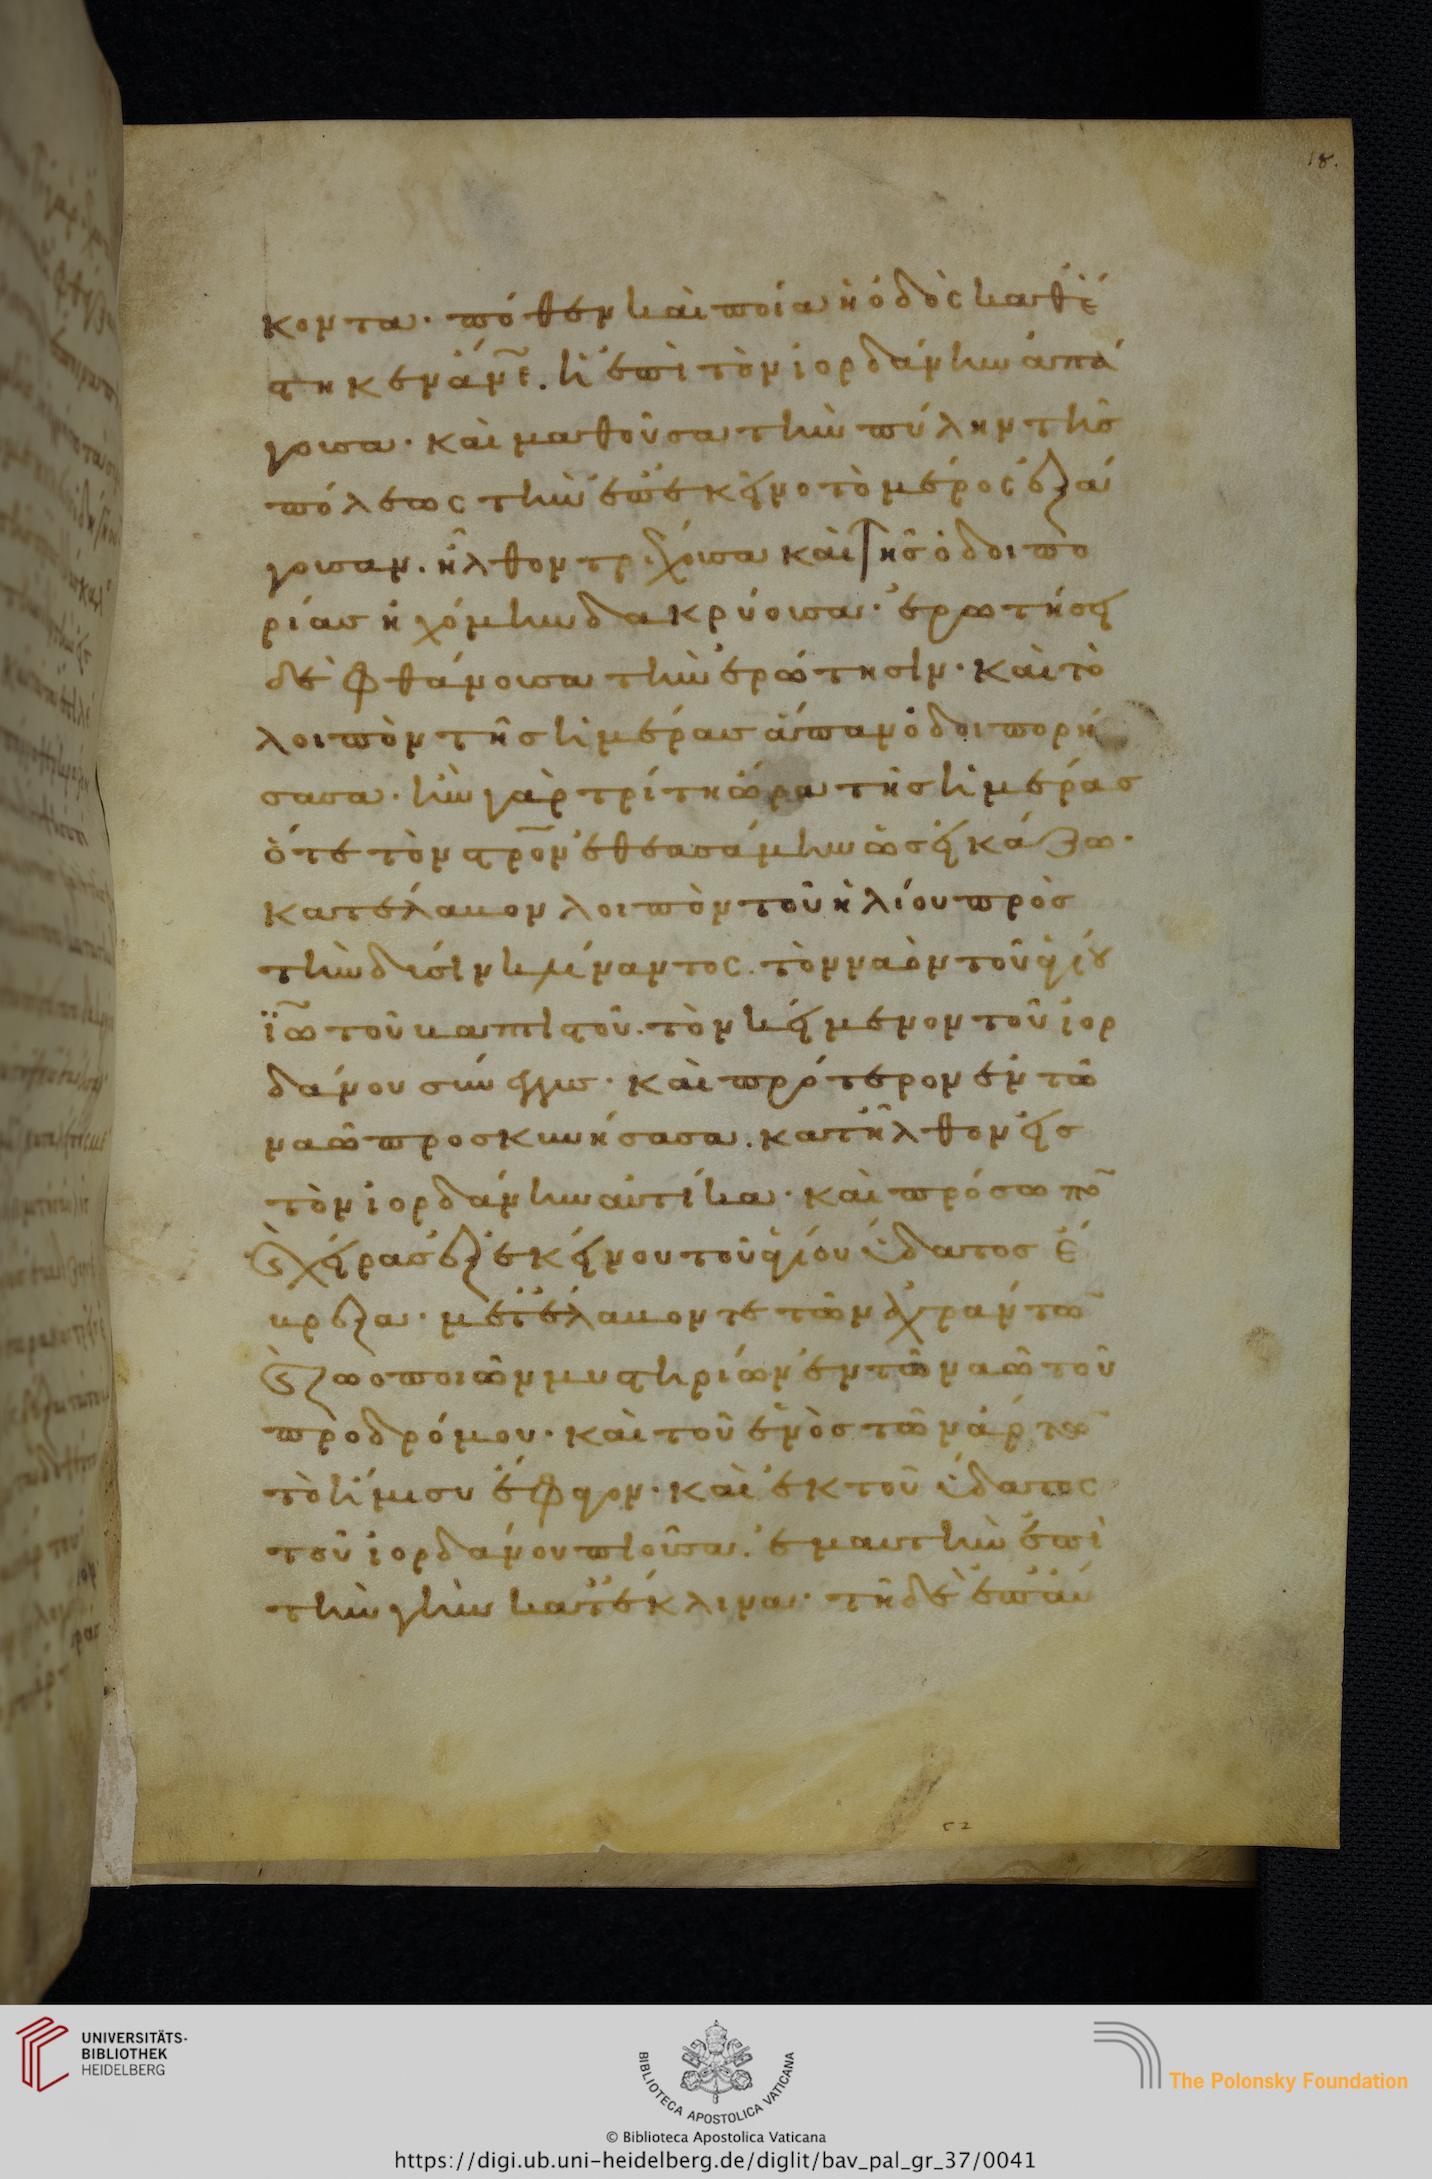 18.
κοντα· πόθεν καὶ ποία ἡ ὁδὸς καθέ
στηκεν ἄνε̅· ἡ ἐπὶ τὸν ἰορδάνην ἀπά
γουσα· καὶ μαθοῦσα τὴν πύλην τῆς
πόλεως τὴν ἐπ' ἐκεῖνο τὸ μέρος ἐξά
γουσαν· ἦλθον τρέχουσα καὶ τῆς ὁδοιπο
ρίας ἠχόμην δακρύουσα· ἐρωτήσει
δὲ φθάνουσα τὴν ἐρώτησιν· καὶ τὸ
λοιπὸν τῆς ἡμέρας ἅπαν ὁδοιπορή
σασα· ἦν γὰρ τρίτη ὥρα τῆς ἡμέρας
ὅτε τὸν στρο̅ν ἐθεασάμην ὡς εἰκάζω·
κατέλαβον λοιπὸν τοῦ ἡλίου πρὸς
τὴν δύσιν κλίναντος· τὸν ναὸν τοῦ ἁγίου
ἰω̅ τοῦ βαπτιστοῦ· τὸν κείμενον τοῦ ἰορ
δάνου σύνεγγυς· καὶ πρότερον ἐν τῶ
ναῶ προσκυνήσασα· κατῆλθον εἰς
τὸν ἰορδάνην αὐτίκα· καὶ πρόσωπο̅
καὶ χεῖρας ἐξ ἐκείνου τοῦ ἁγίου ὕδατος ἔ
βρεξα· μετέλαβόν τε τῶν ἀχράντω̅
καὶ ζωοποιῶν μυστηρίων ἐν τῶ ναῶ τοῦ
προδρόμου· καὶ τοῦ ἑνὸς τῶν ἄρτω̅
τὸ ἥμισυ ἔφαγον· καὶ ἐκ τοῦ ὕδατος
τοῦ ἰορδάνου πιοῦσα· ἐμαυτὴν ἐπὶ
τὴν γὴν κατέκλινα· τῆ δὲ ἐπαύ
52
UNIVERSITÄTS-
BIBLIOTHEK
HEIDELBERG
BIBLIOTECA APOSTOLICA VATICANA
© Biblioteca Apostolica Vaticana
The Polonsky Foundation
https://digi.ub.uni-heidelberg.de/diglit/bav_pal_gr_37/0041